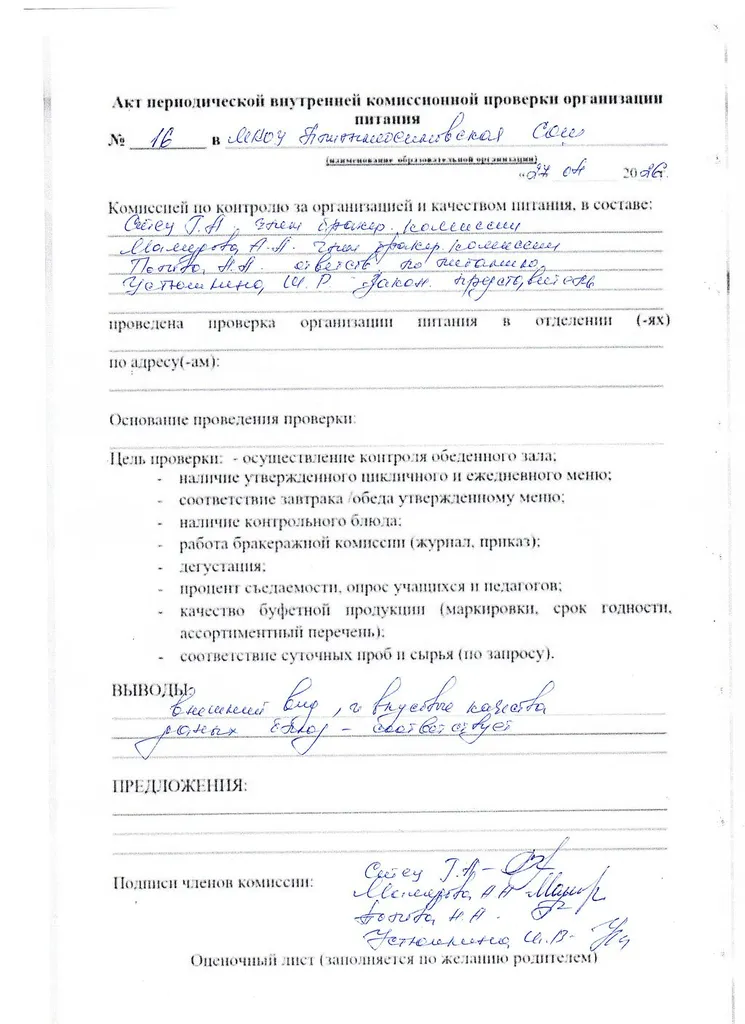 Акт периодической внутренней комиссионной проверки организации
питания
№ 16 в МКОУ СОШ
(наименование образовательной организации)
"27 04 2026г.
Комиссией по контролю за организацией и качеством питания, в составе:
Стец Г.А, член бракер. комиссии
Мамедова А.А. член бракер. комиссии
Попова Н.А. ответств. по питанию,
Устюшкина, Ш.Р Закон. представитель
проведена проверка организации питания в отделении (-ях)
по адресу(-ам):
Основание проведения проверки:
Цель проверки: - осуществление контроля обеденного зала;
- наличие утвержденного цикличного и ежедневного меню;
- соответствие завтрака /обеда утвержденному меню;
- наличие контрольного блюда;
- работа бракеражной комиссии (журнал, приказ);
- дегустация;
- процент съедаемости, опрос учащихся и педагогов;
- качество буфетной продукции (маркировки, срок годности,
ассортиментный перечень);
- соответствие суточных проб и сырья (по запросу).
ВЫВОДЫ:
внешний вид, и вкусовые качества
блюд - соответствует
ПРЕДЛОЖЕНИЯ:
Подписи членов комиссии:
Стец Г.А -
Мамедова А А
Попова Н.А.
Устюшкина Ш.В-
Оценочный лист (заполняется по желанию родителем)